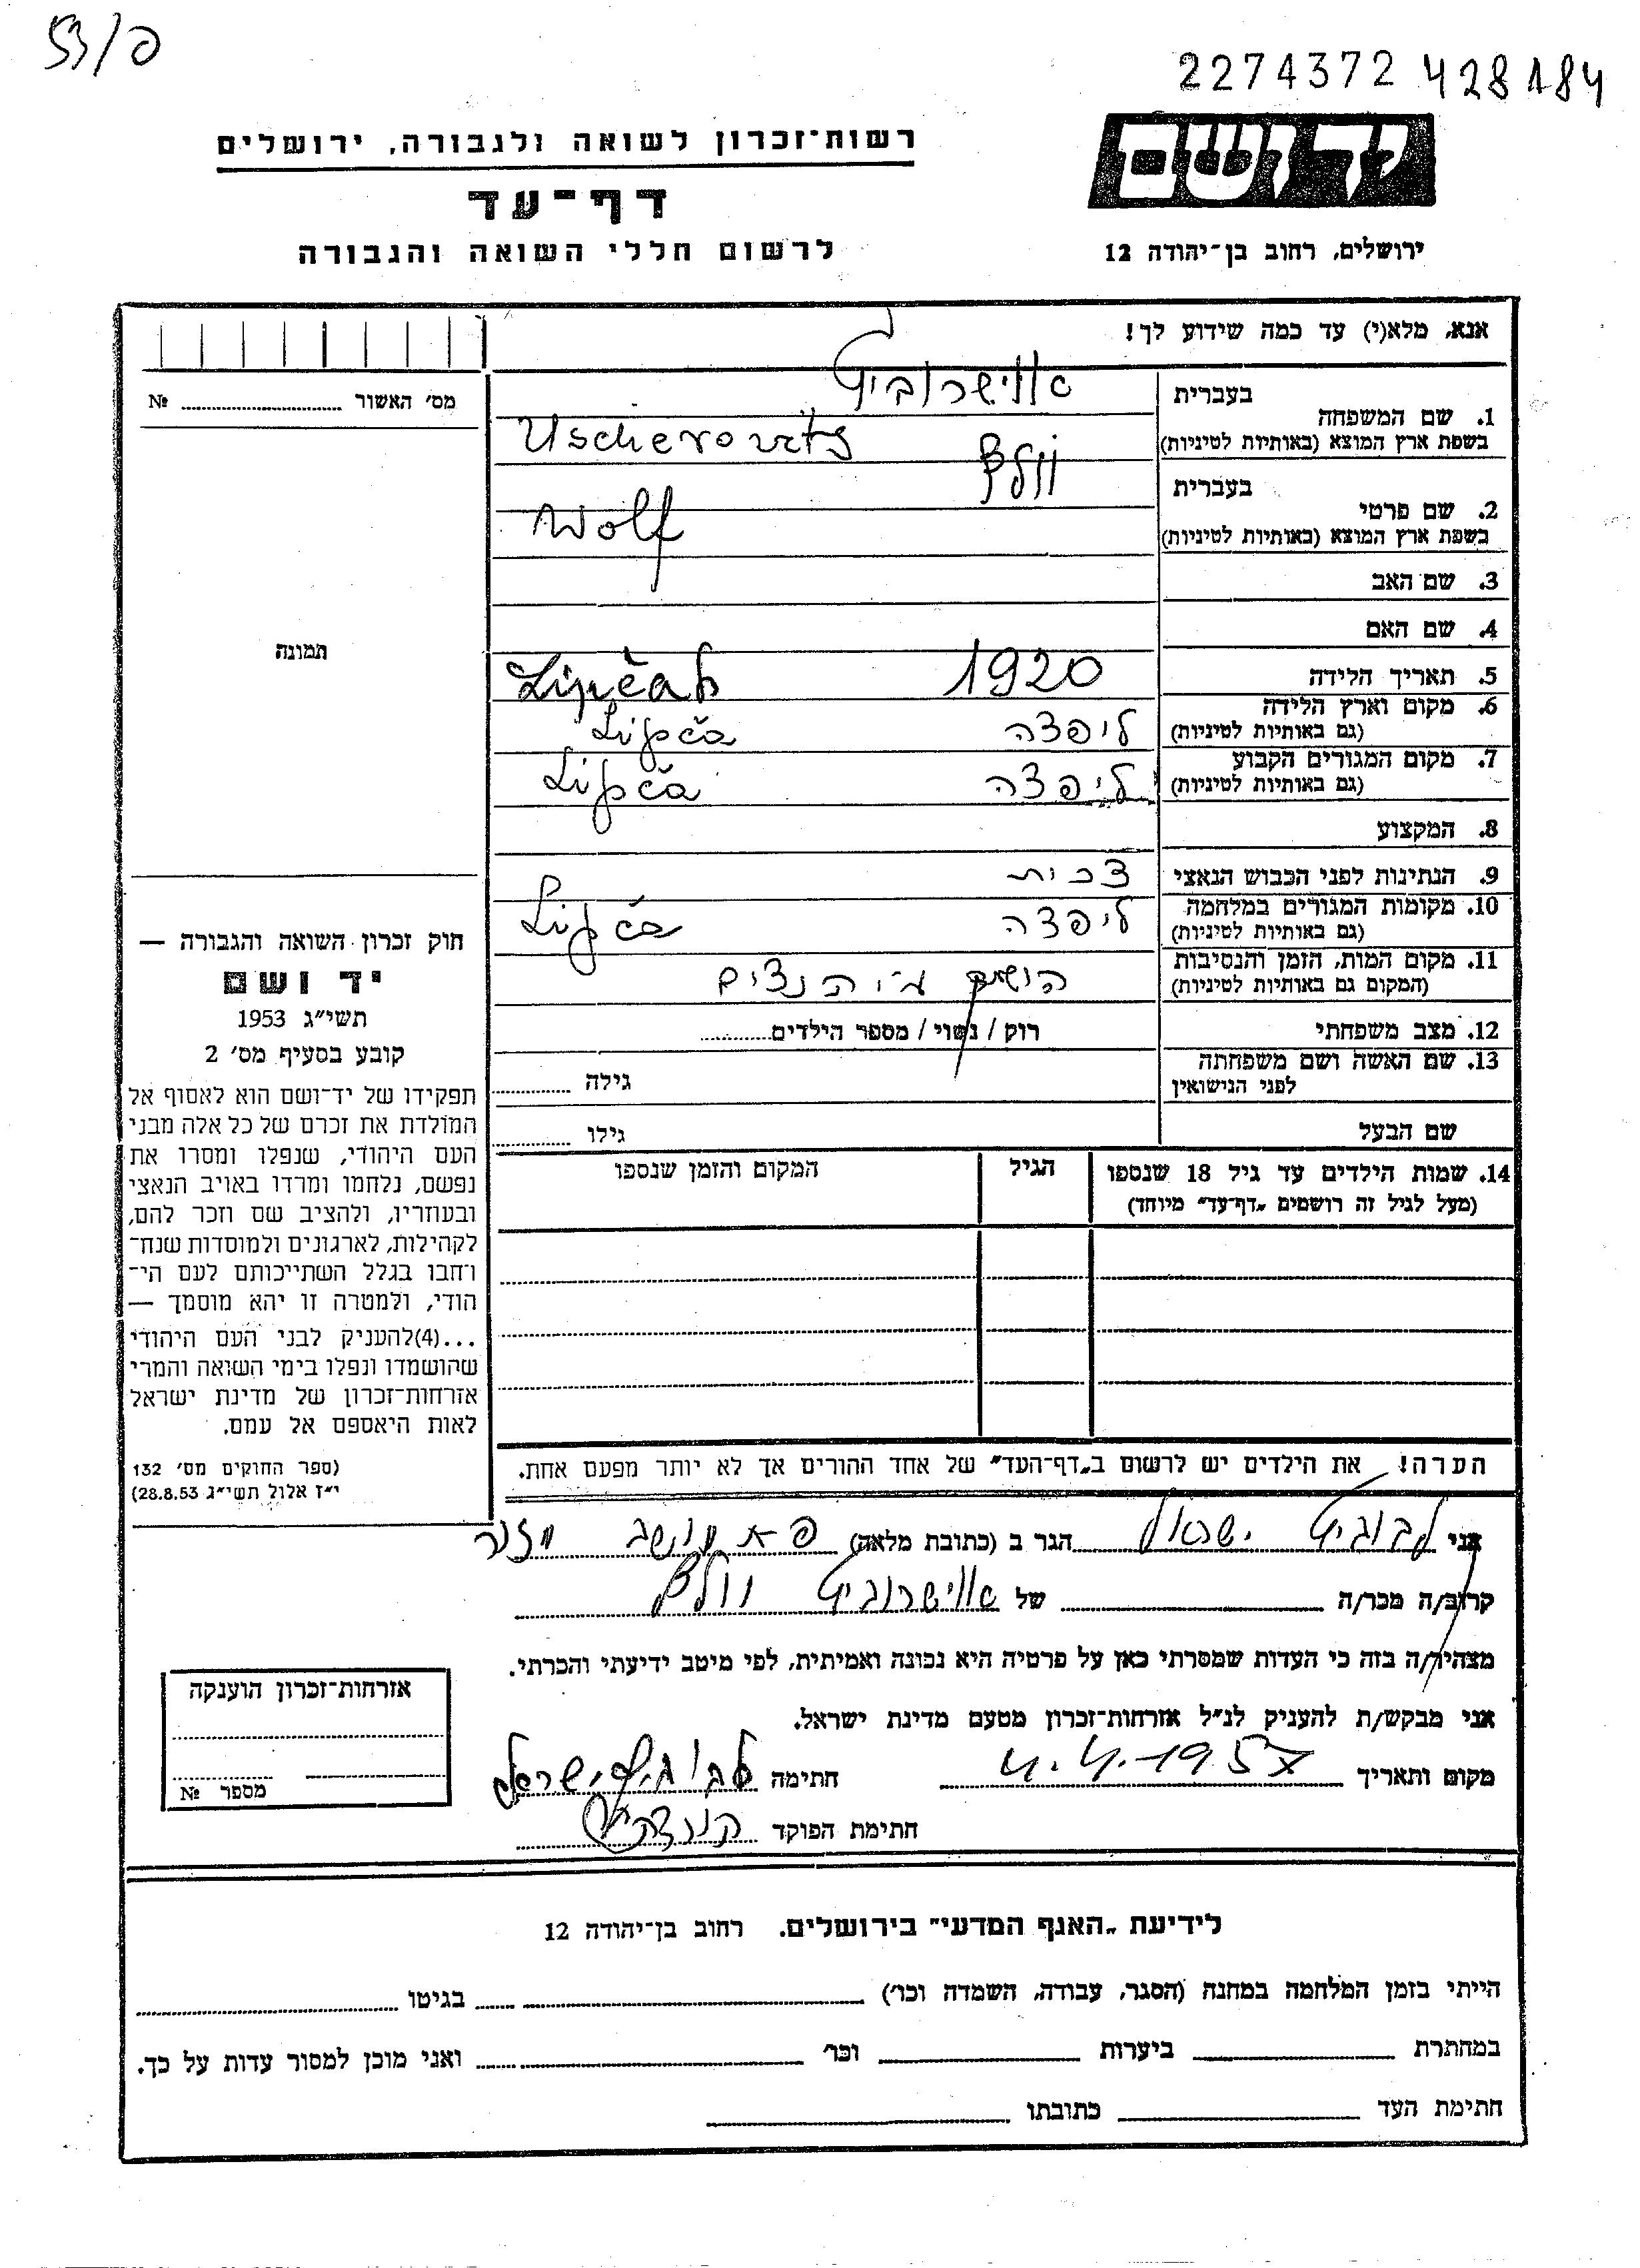 53/פ
2274372 428184
יד ושם
רשות־זכרון לשואה ולגבורה, ירושלים
דף־עד
לרשום חללי השואה והגבורה
ירושלים, רחוב בן־יהודה 12
אנא, מלא(י) עד כמה שידוע לך!
מס׳ האשור № 
1. שם המשפחה
בעברית
אושרוביץ
בשפת ארץ המוצא (באותיות לטיניות)
Uscherovits
2. שם פרטי
בעברית
וולף
בשפת ארץ המוצא (באותיות לטיניות)
Wolf
3. שם האב
4. שם האם
5. תאריך הלידה
1920
6. מקום וארץ הלידה
(גם באותיות לטיניות)
ליפצה Lipča
7. מקום המגורים הקבוע
(גם באותיות לטיניות)
ליפצה Lipča
8. המקצוע
9. הנתינות לפני הכבוש הנאצי
צכית
10. מקומות המגורים במלחמה
(גם באותיות לטיניות)
ליפצה Lipča
11. מקום המות, הזמן והנסיבות
(המקום גם באותיות לטיניות)
הושמד ע״י הנצים
12. מצב משפחתי
רוק / נשוי / מספר הילדים
13. שם האשה ושם משפחתה
לפני הנישואין
גילה
שם הבעל
גילו
14. שמות הילדים עד גיל 18 שנספו
(מעל לגיל זה רושמים „דף־עד” מיוחד)
הגיל
המקום והזמן שנספו
תמונה
חוק זכרון השואה והגבורה —
יד ושם
תשי״ג 1953
קובע בסעיף מס׳ 2
תפקידו של יד־ושם הוא לאסוף אל
המולדת את זכרם של כל אלה מבני
העם היהודי, שנפלו ומסרו את
נפשם, נלחמו ומרדו באויב הנאצי
ובעוזריו, ולהציב שם וזכר להם,
לקהילות, לארגונים ולמוסדות שנח־
רחבו בגלל השתייכותם לעם הי־
הודי, ולמטרה זו יהא מוסמך —
...(4)להעניק לבני העם היהודי
שהושמדו ונפלו בימי השואה והמרי
אזרחות־זכרון של מדינת ישראל
לאות היאספם אל עמם.
(ספר החוקים מס׳ 132
י״ז אלול תשי״ג 28.8.53)
הערה! את הילדים יש לרשום ב„דף־העד” של אחד ההורים אך לא יותר מפעם אחת.
אני לבוביץ ישראל הגר ב (כתובת מלאה) מושב
קרוב/ה מכר/ה של אושרוביץ וולף
מצהיר/ה בזה כי העדות שמסרתי כאן על פרטיה היא נכונה ואמיתית, לפי מיטב ידיעתי והכרתי.
אני מבקש/ת להעניק לנ״ל אזרחות־זכרון מטעם מדינת ישראל.
מקום ותאריך 4.4.1957 חתימה לבוביץ ישראל
חתימת הפוקד
אזרחות־זכרון הוענקה
מספר №
לידיעת „האנף המדעי” בירושלים. רחוב בן־יהודה 12
הייתי בזמן המלחמה במחנה (הסגר, עבודה, השמדה וכו׳) בגיטו
במחתרת ביערות וכו׳ ואני מוכן למסור עדות על כך.
חתימת העד כתובתו